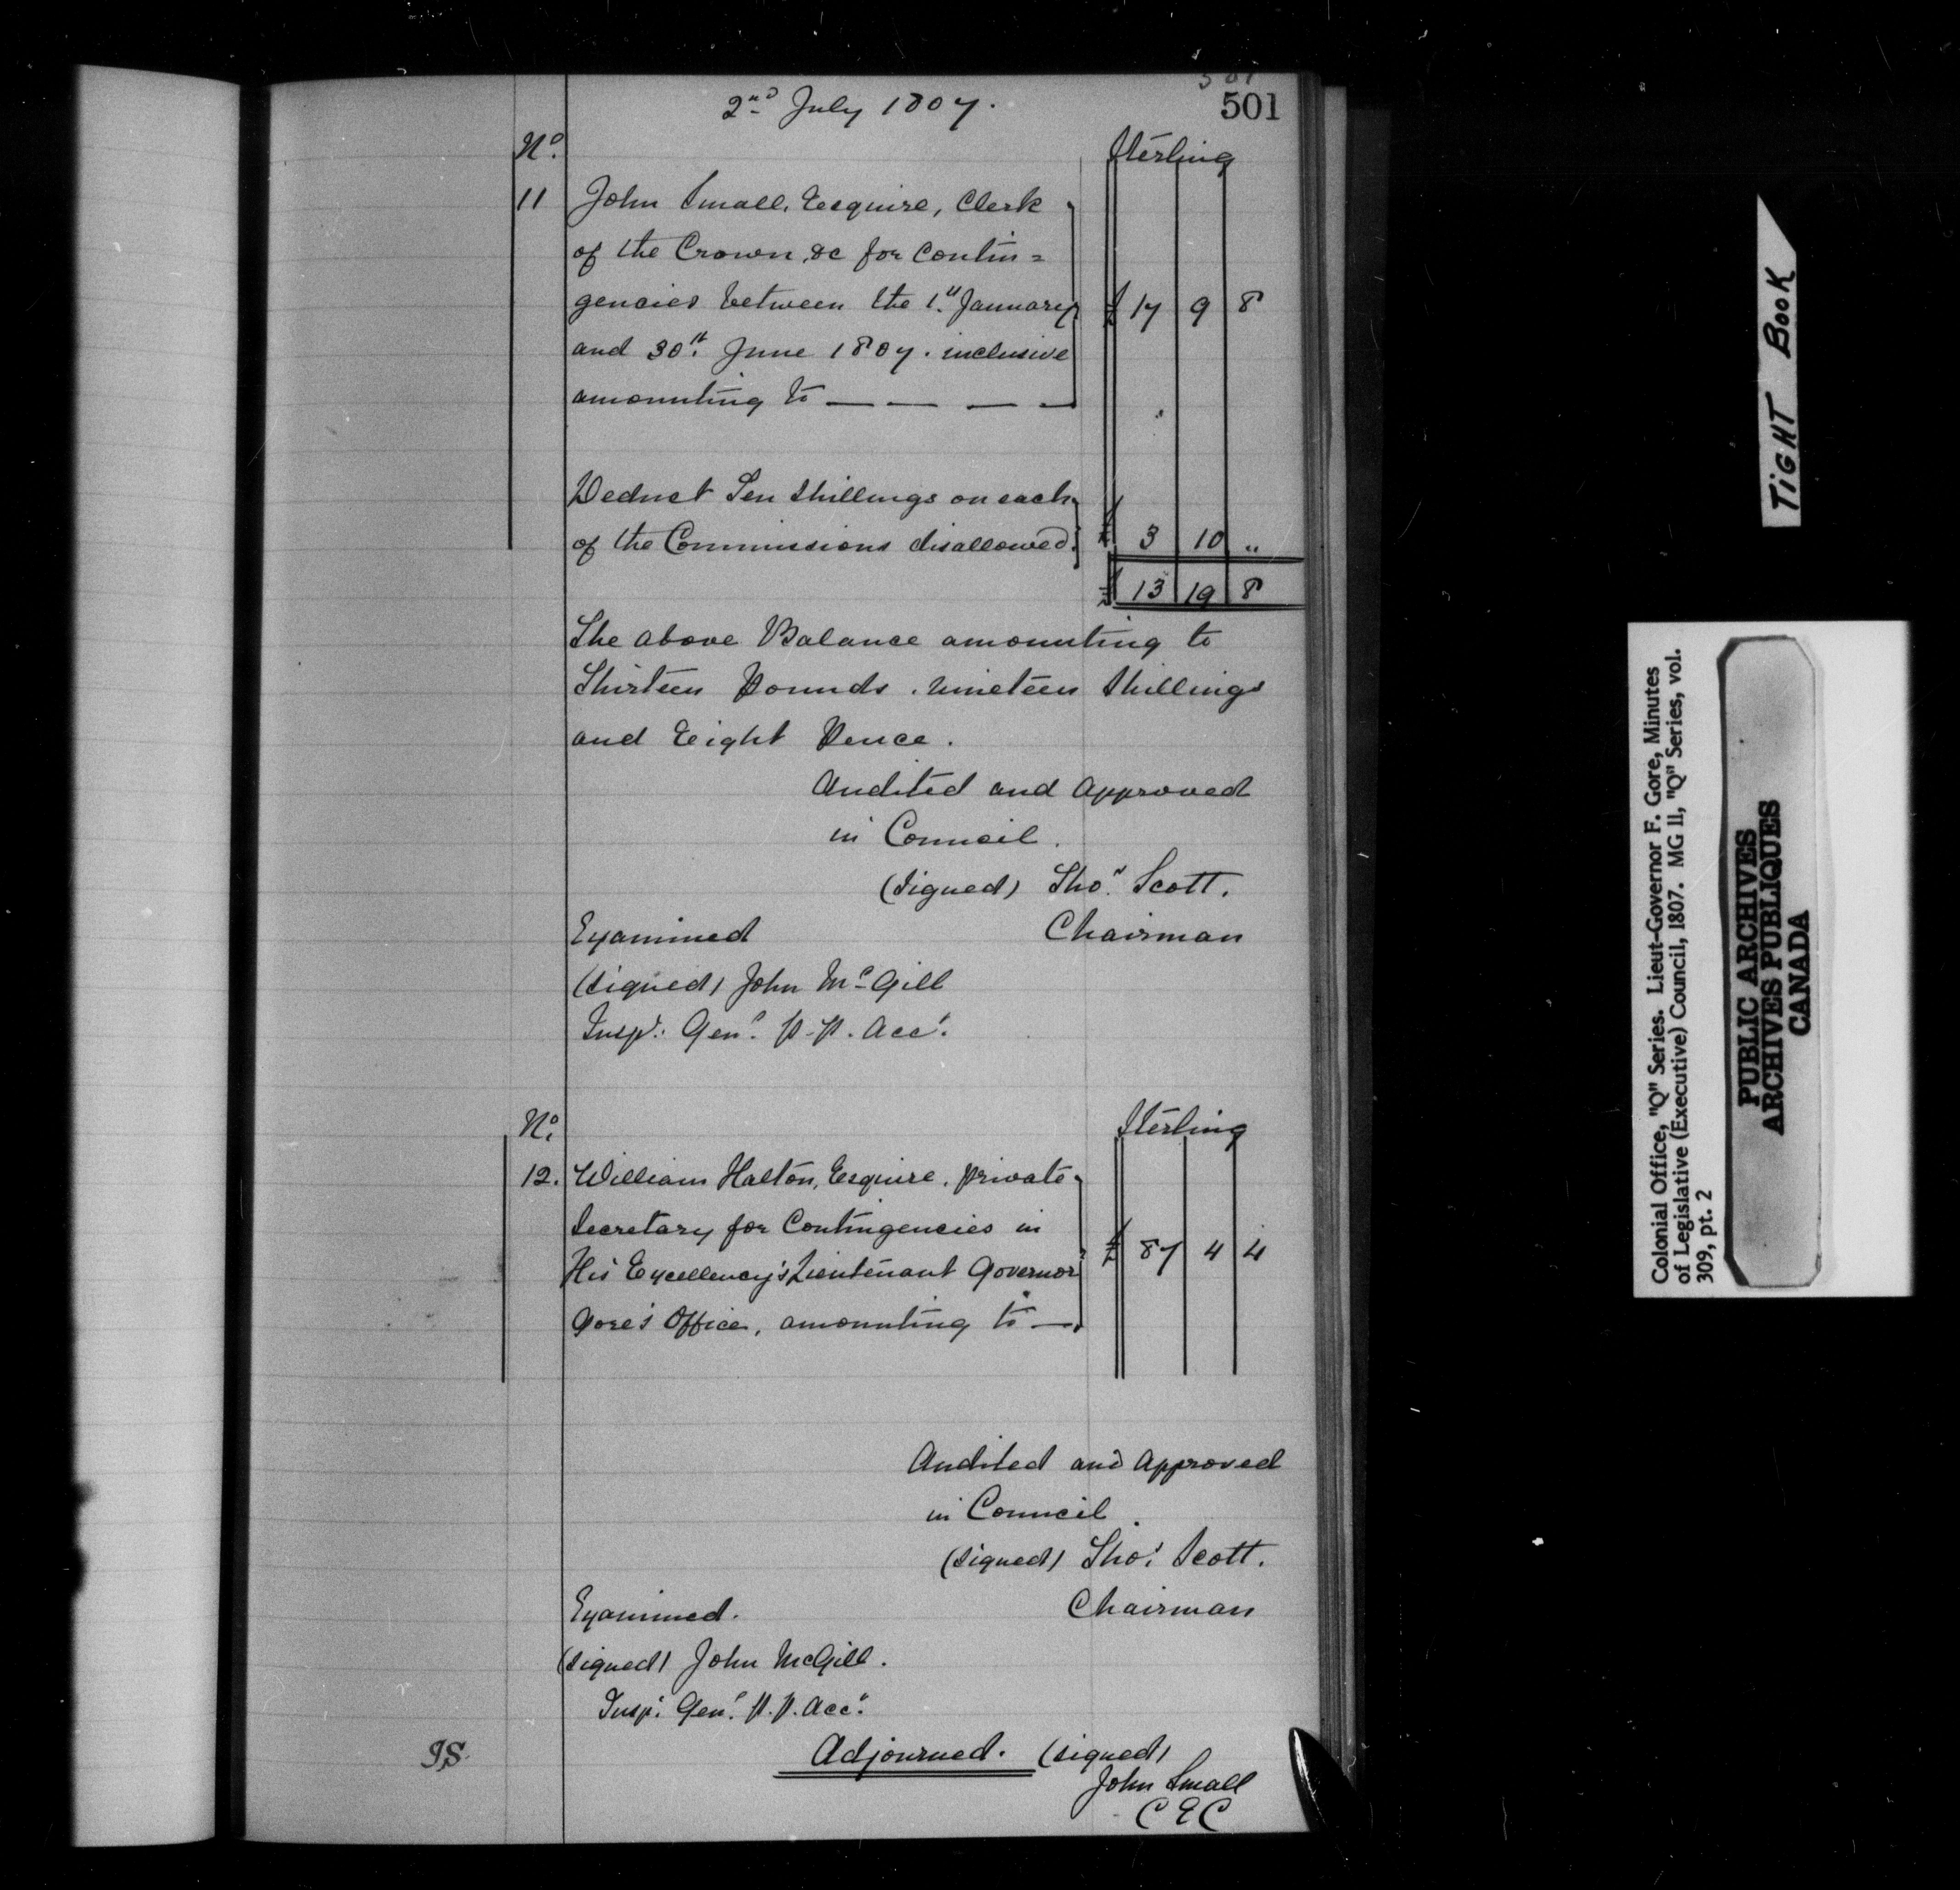 501
2nd July 1807.
501
No. Sterling
11 John Small, Esquire, Clerk
of the Crown, &c for Contin=
gencies between the 1st January £ 17 9 8
and 30th June 1807. inclusive
amounting to — — — —
Deduct Ten Shillings on each
of the Commissions disallowed. £ 3 10 „
£ 13 19 8
The above Balance amounting to
Thirteen Pounds. nineteen Shillings
and Eight Pence.
Audited and Approved
in Council.
(Signed) Thos. Scott.
Examined Chairman
(Signed) John McGill
Insp. Genl. P. P. Acct.
No. Sterling
12. William Halton, Esquire, private
Secretary for Contingencies in
His Excellency's Lieutenant Governor £ 87 4 4
Gore's Office, amounting to —
Audited and Approved
in Council.
(Signed) Thos. Scott.
Examined. Chairman
(Signed) John McGill.
Insp. Genl. P. P. Acct.
Adjourned. (Signed)
John Small
C E C
JS
TIGHT BOOK
Colonial Office, "Q" Series. Lieut-Governor F. Gore, Minutes
of Legislative (Executive) Council, 1807. MG 11, "Q" Series, vol.
309, pt. 2
PUBLIC ARCHIVES
ARCHIVES PUBLIQUES
CANADA